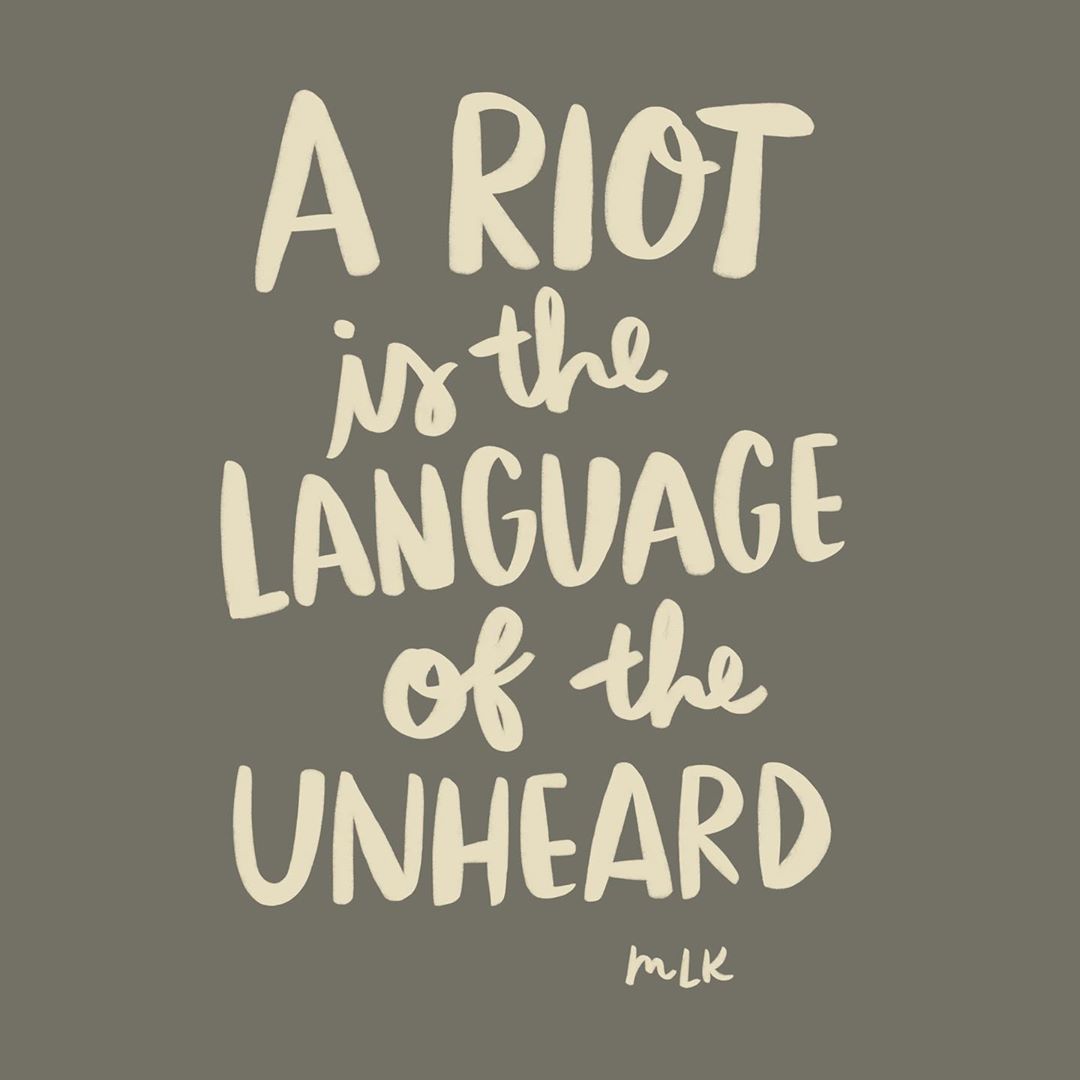 A RIOT
is the
LANGUAGE
of the
UNHEARD
MLK